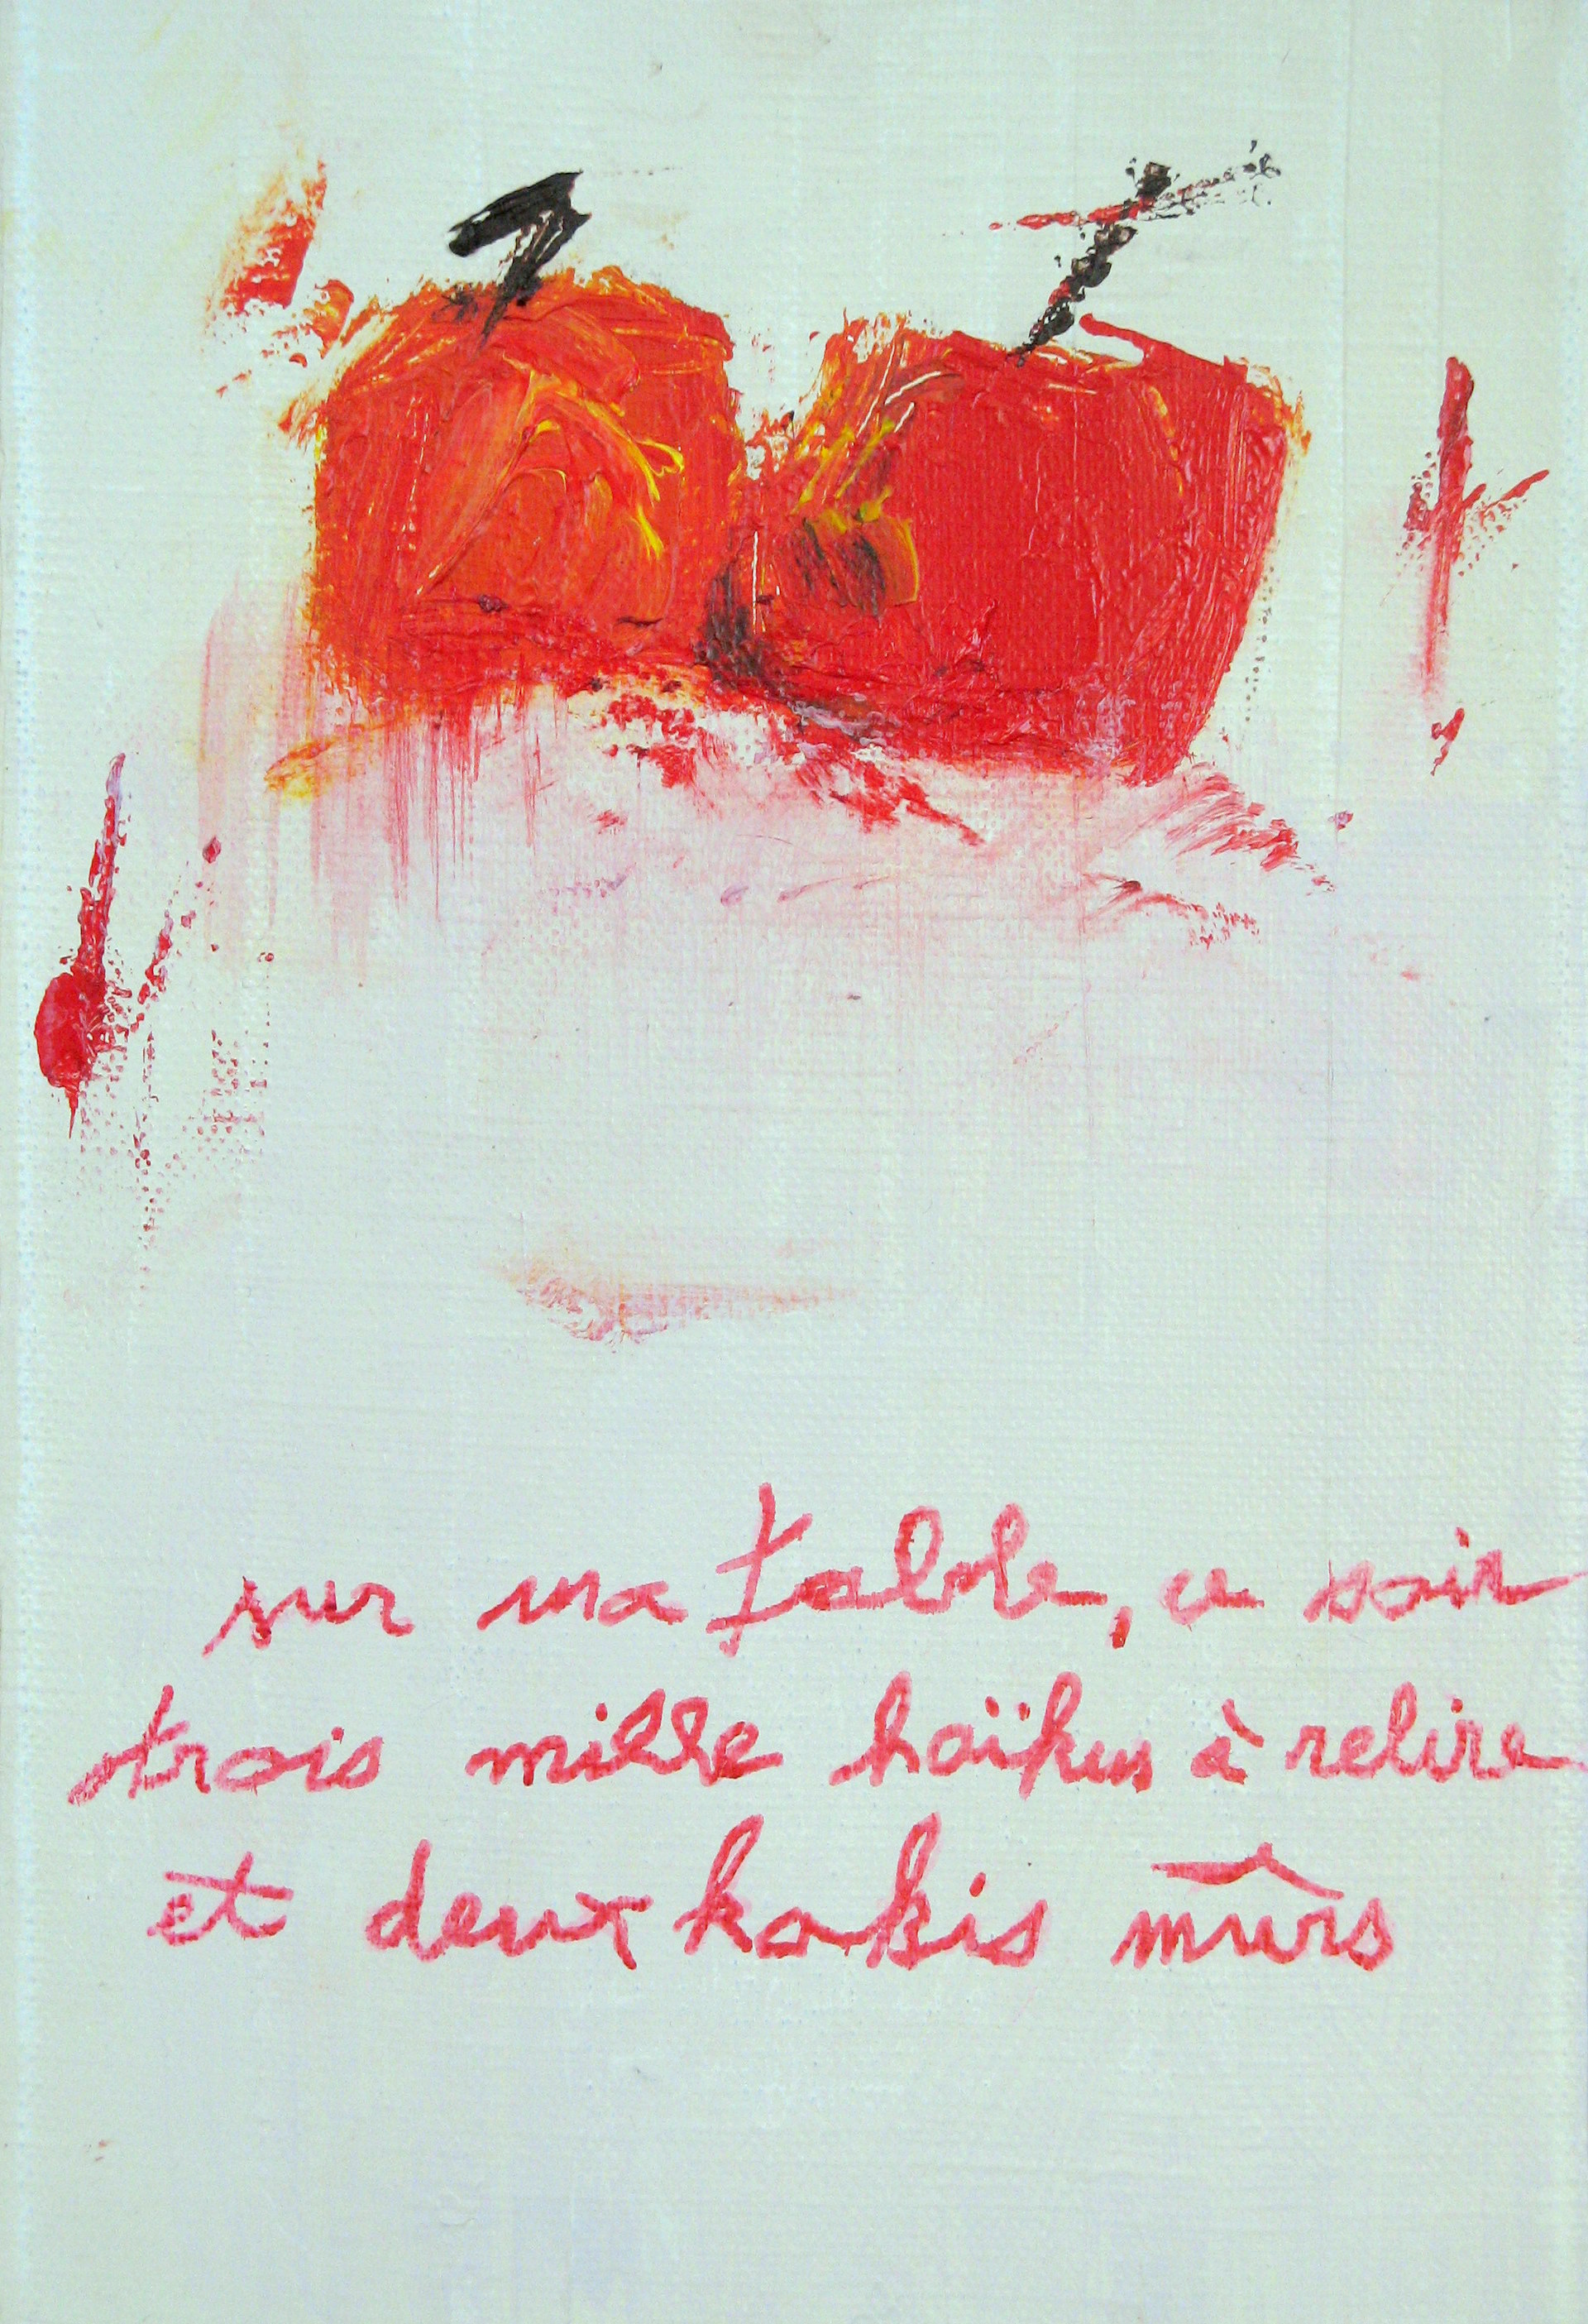 sur ma table, ce soir
trois mille haïkus à relire
et deux kakis mûrs